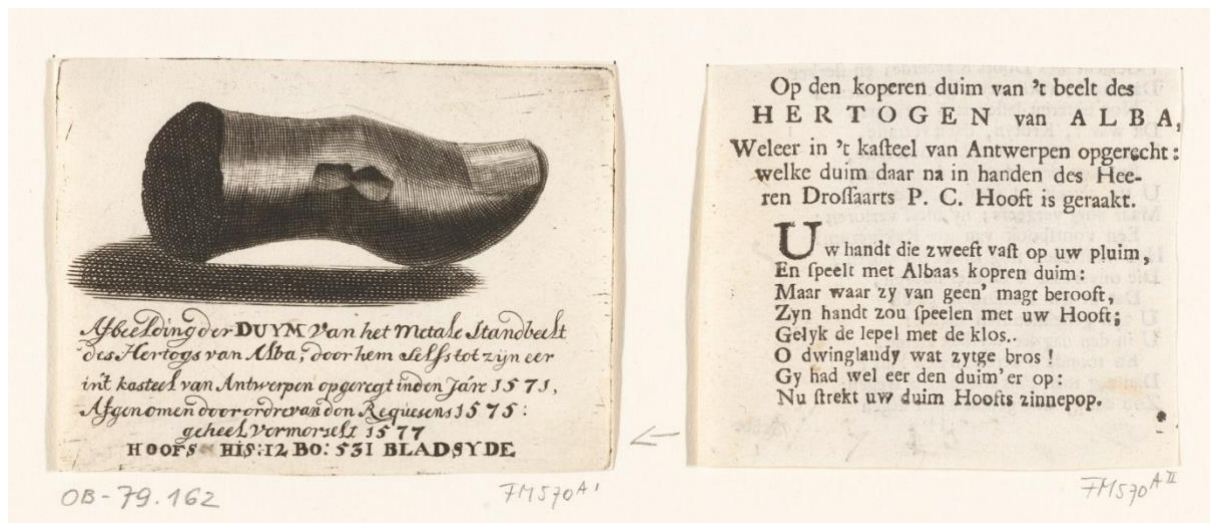 Afbeelding der DUYM Van het Metale Standbeelt
des Hertogs van Alba, door hem Selfs tot zijn eer
int kasteel van Antwerpen opgeregt inden Jare 1571,
Afgenomen door ordre van don Requesens 1575:
geheel vermorselt 1577
HOOFS HIS: 12 BO: 531 BLADSYDE
OB-79.162
FM570 A I
Op den koperen duim van 't beelt des
HERTOGEN van ALBA,
Weleer in 't kaſteel van Antwerpen opgerecht:
welke duim daar na in handen des Hee-
ren Droſſaarts P. C. Hooft is geraakt.
Uw handt die zweeft vaſt op uw pluim,
En ſpeelt met Albaas kopren duim:
Maar waar zy van geen' magt berooft,
Zyn handt zou ſpeelen met uw Hooft;
Gelyk de lepel met de klos.
O dwinglandy wat zytge bros!
Gy had wel eer den duim'er op:
Nu ſtrekt uw duim Hoofts zinnepop.
FM570 A II